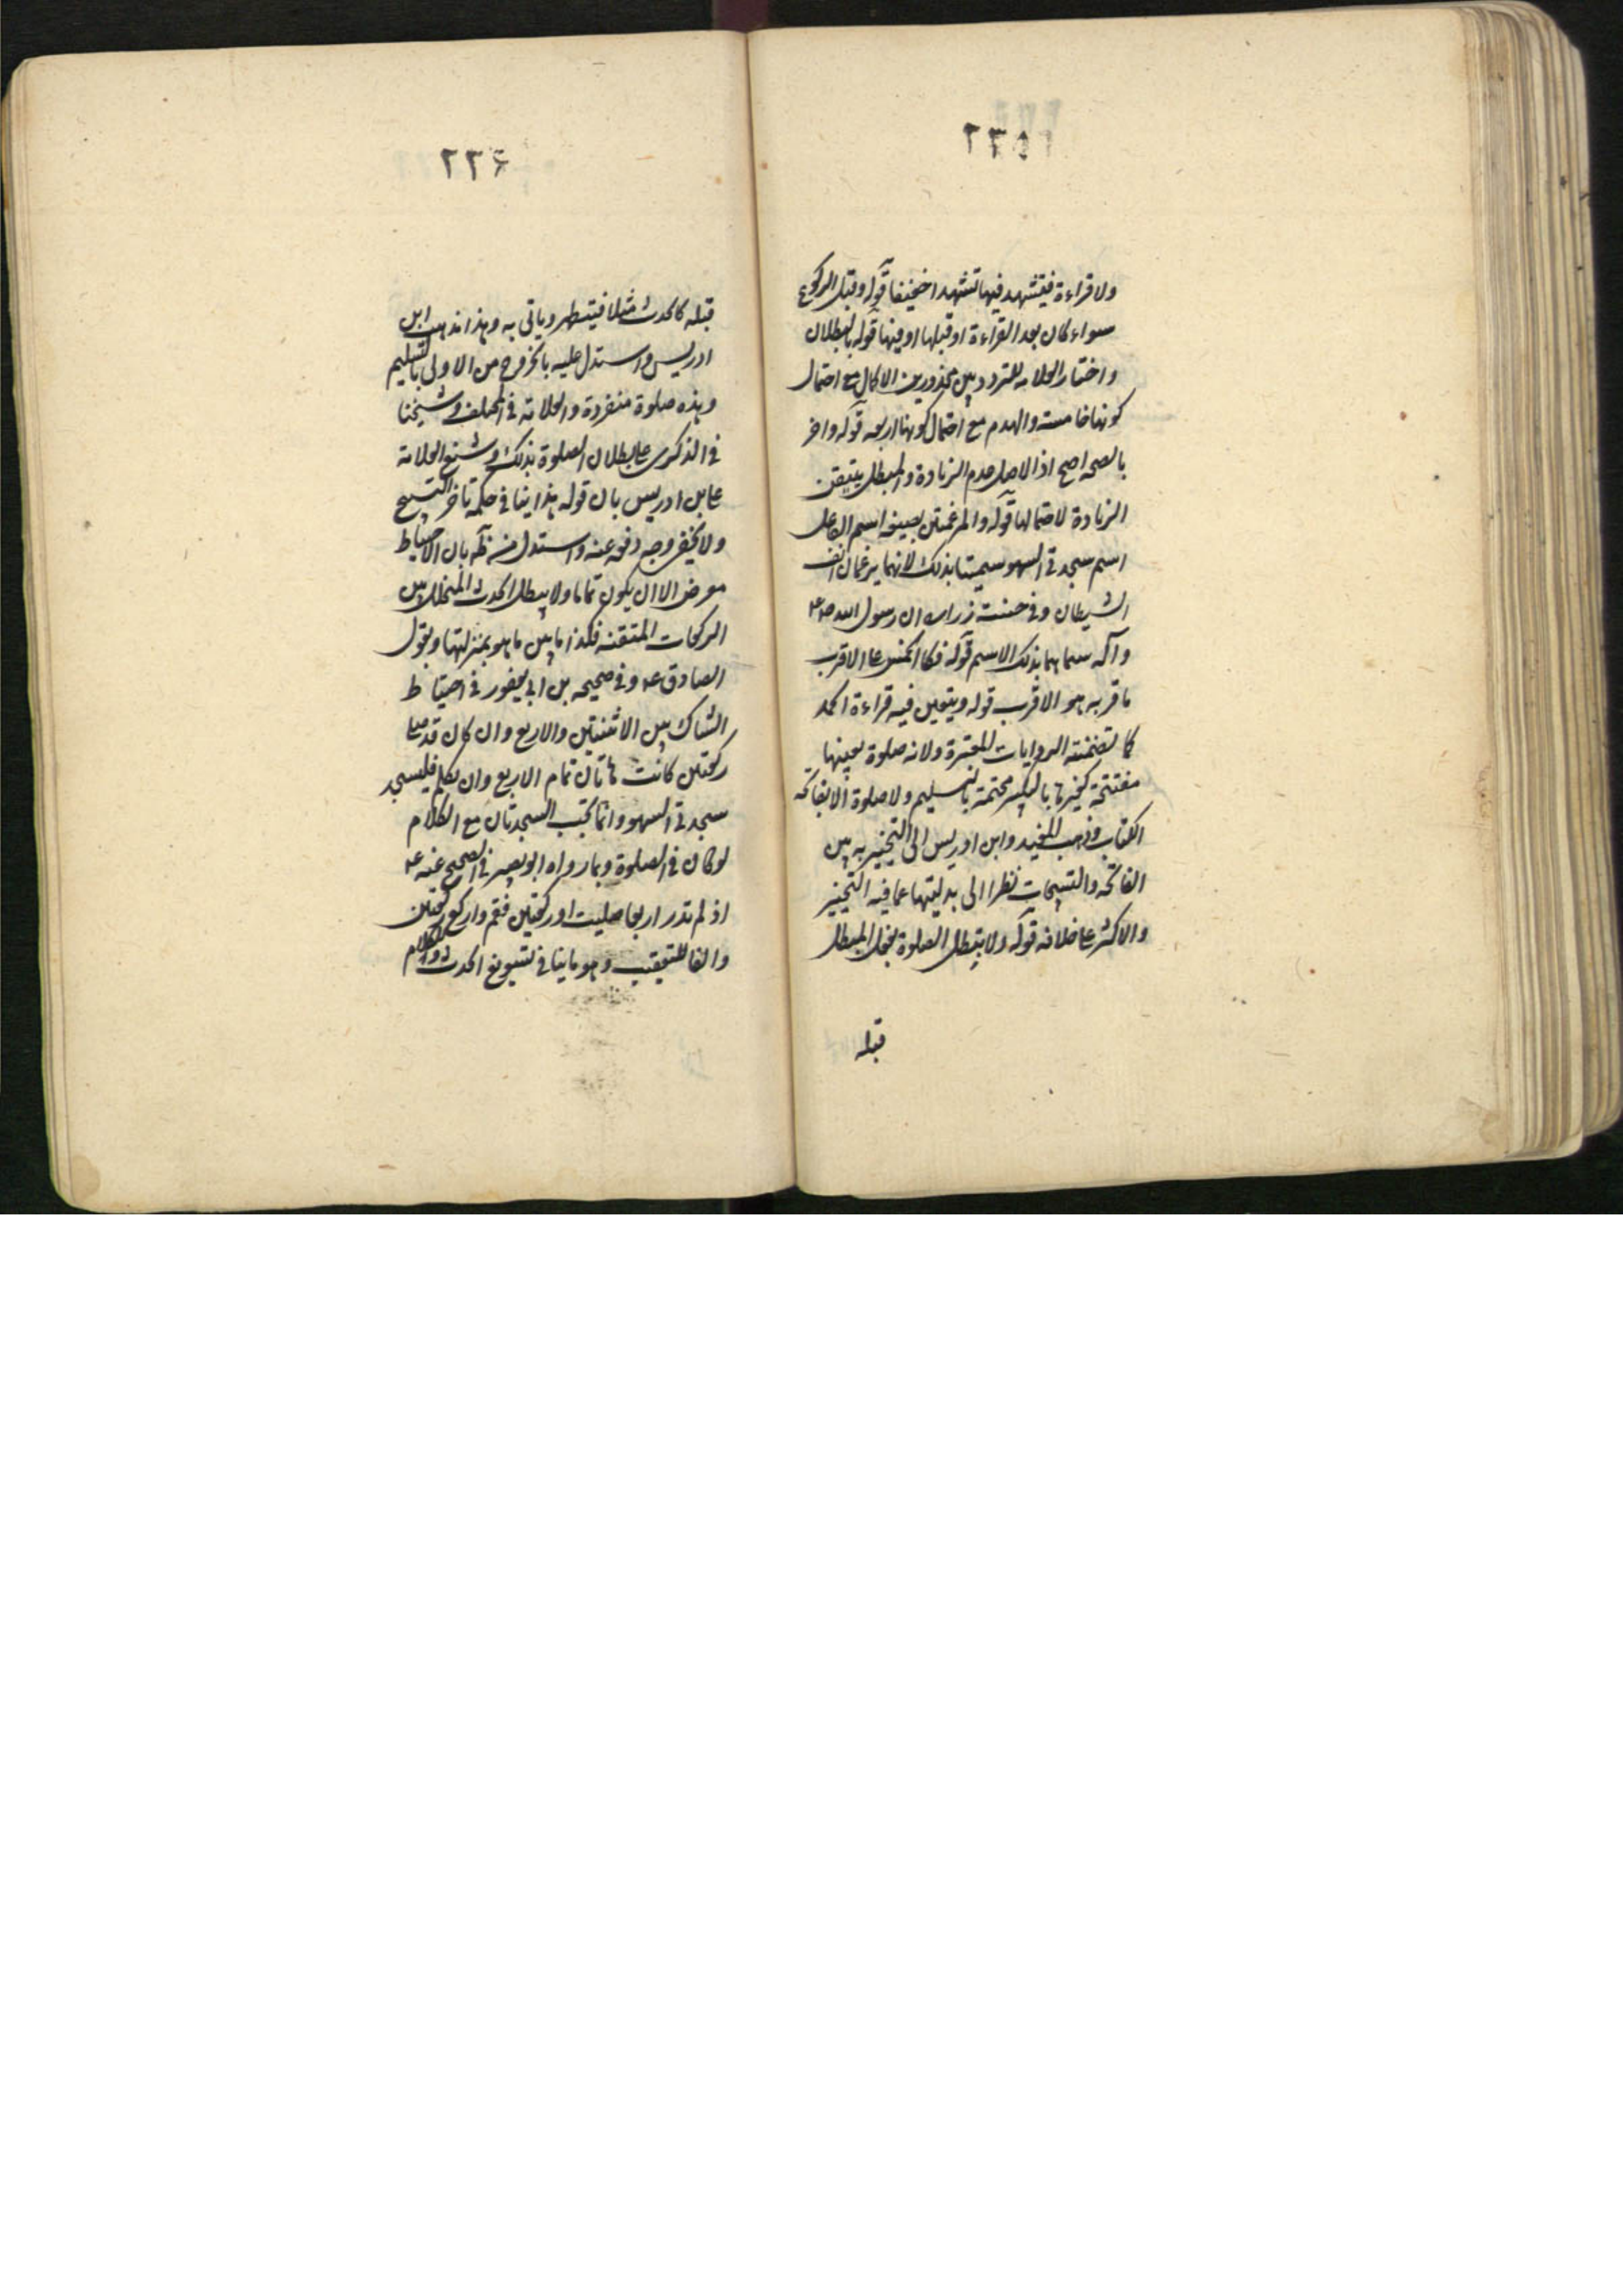 ٢٢٥
ولا قراءة فيتشهد فيها تشهدا خفيفا قوله وقبل الركوع
سواء كان بعد القراءة او قبلها او فيها قوله بالبطلان
واختار العلامه للتردد بين محذورين الاكمال مع احتمال
كونها خامسة والهدم مع احتمال كونها اربعه قوله واخر
بالصحه اصح اذ الاصل عدم الزيادة والمبطل يتيقن
الزيادة لا احتمالها قوله والمرغمتين بصيغه اسم الفاعل
اسم سجدتي السهو سميتا بذلك لانهما يرغمان انف
الشيطان وفي حسنة زرارة ان رسول الله ص ع
وآله سماهما بذلك الاسم قوله فكالخمس عل الاقرب
ما قربه هو الاقرب قوله ويتعين فيه قراءة الحمد
كما تضمنته الروايات المعتبرة ولانه صلوة بعينها
مفتتحة كغيرها بالتكبير مختتمة بالتسليم ولا صلوة الا بفاتحه
الكتاب وذهب المفيد وابن ادريس الى التخيير به بين
الفاتحه والتسبيحات نظرا الى بدليتها عما فيه التخيير
والاكثر عل خلافه قوله ولا يبطل الصلوة بفعل المبطل
قبله
٢٢۶
قبله كالحدث مثلا فيتطهر وياتى به وهذا مذهب ابن
ادريس واستدل عليه بالخروج من الاولى بالتسليم
وهذه صلوة منفردة والعلامه في المختلف وشيخنا
في الذكرى عل بطلان الصلوة بذلك وشنع العلامة
عل ابن ادريس بان قوله هذا ينافي حكمه تاخر التسبيح
ولا يخفى وجه دفعه عنه واستدل بان الاحتياط
معرض الا ان يكون تماما ولا يبطل الحدث المتخلل بين
الركعات المتيقنه فكذا ما بين ما هو بمنزلتها وبقول
الصادق ع وفي صحيحه بن ابي يعفور في احتياط
الشاك بين الاثنتين والاربع وان كان قد صل
ركعتين كانت هاتان تمام الاربع وان تكلم فليسجد
سجدتي السهو وانما تجب السجدتان مع الكلام
لو كان في الصلوة وبما رواه ابو بصير في الصحيح عنه ع
اذ لم تدر اربعا صليت او ركعتين فقم واركع ركعتين
والفا للتعقيب وهو ما ينافي تسويغ الحدث والكلام